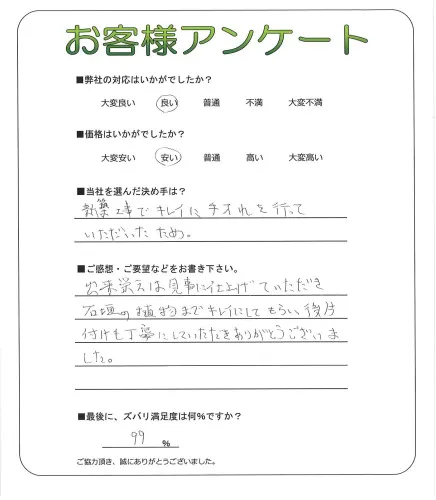 お客様アンケート
■弊社の対応はいかがでしたか？
大変良い 良い 普通 不満 大変不満
■価格はいかがでしたか？
大変安い 安い 普通 高い 大変高い
■当社を選んだ決め手は？
新築工事でキレイに手入れを行って
いただいたため。
■ご感想・ご要望などをお書き下さい。
出来栄えは見事に仕上げていただき
石垣の植物までキレイにしてもらい、後片
付けも丁寧にしていただきありがとうございま
した。
■最後に、ズバリ満足度は何%ですか？
99 %
ご協力頂き、誠にありがとうございました。